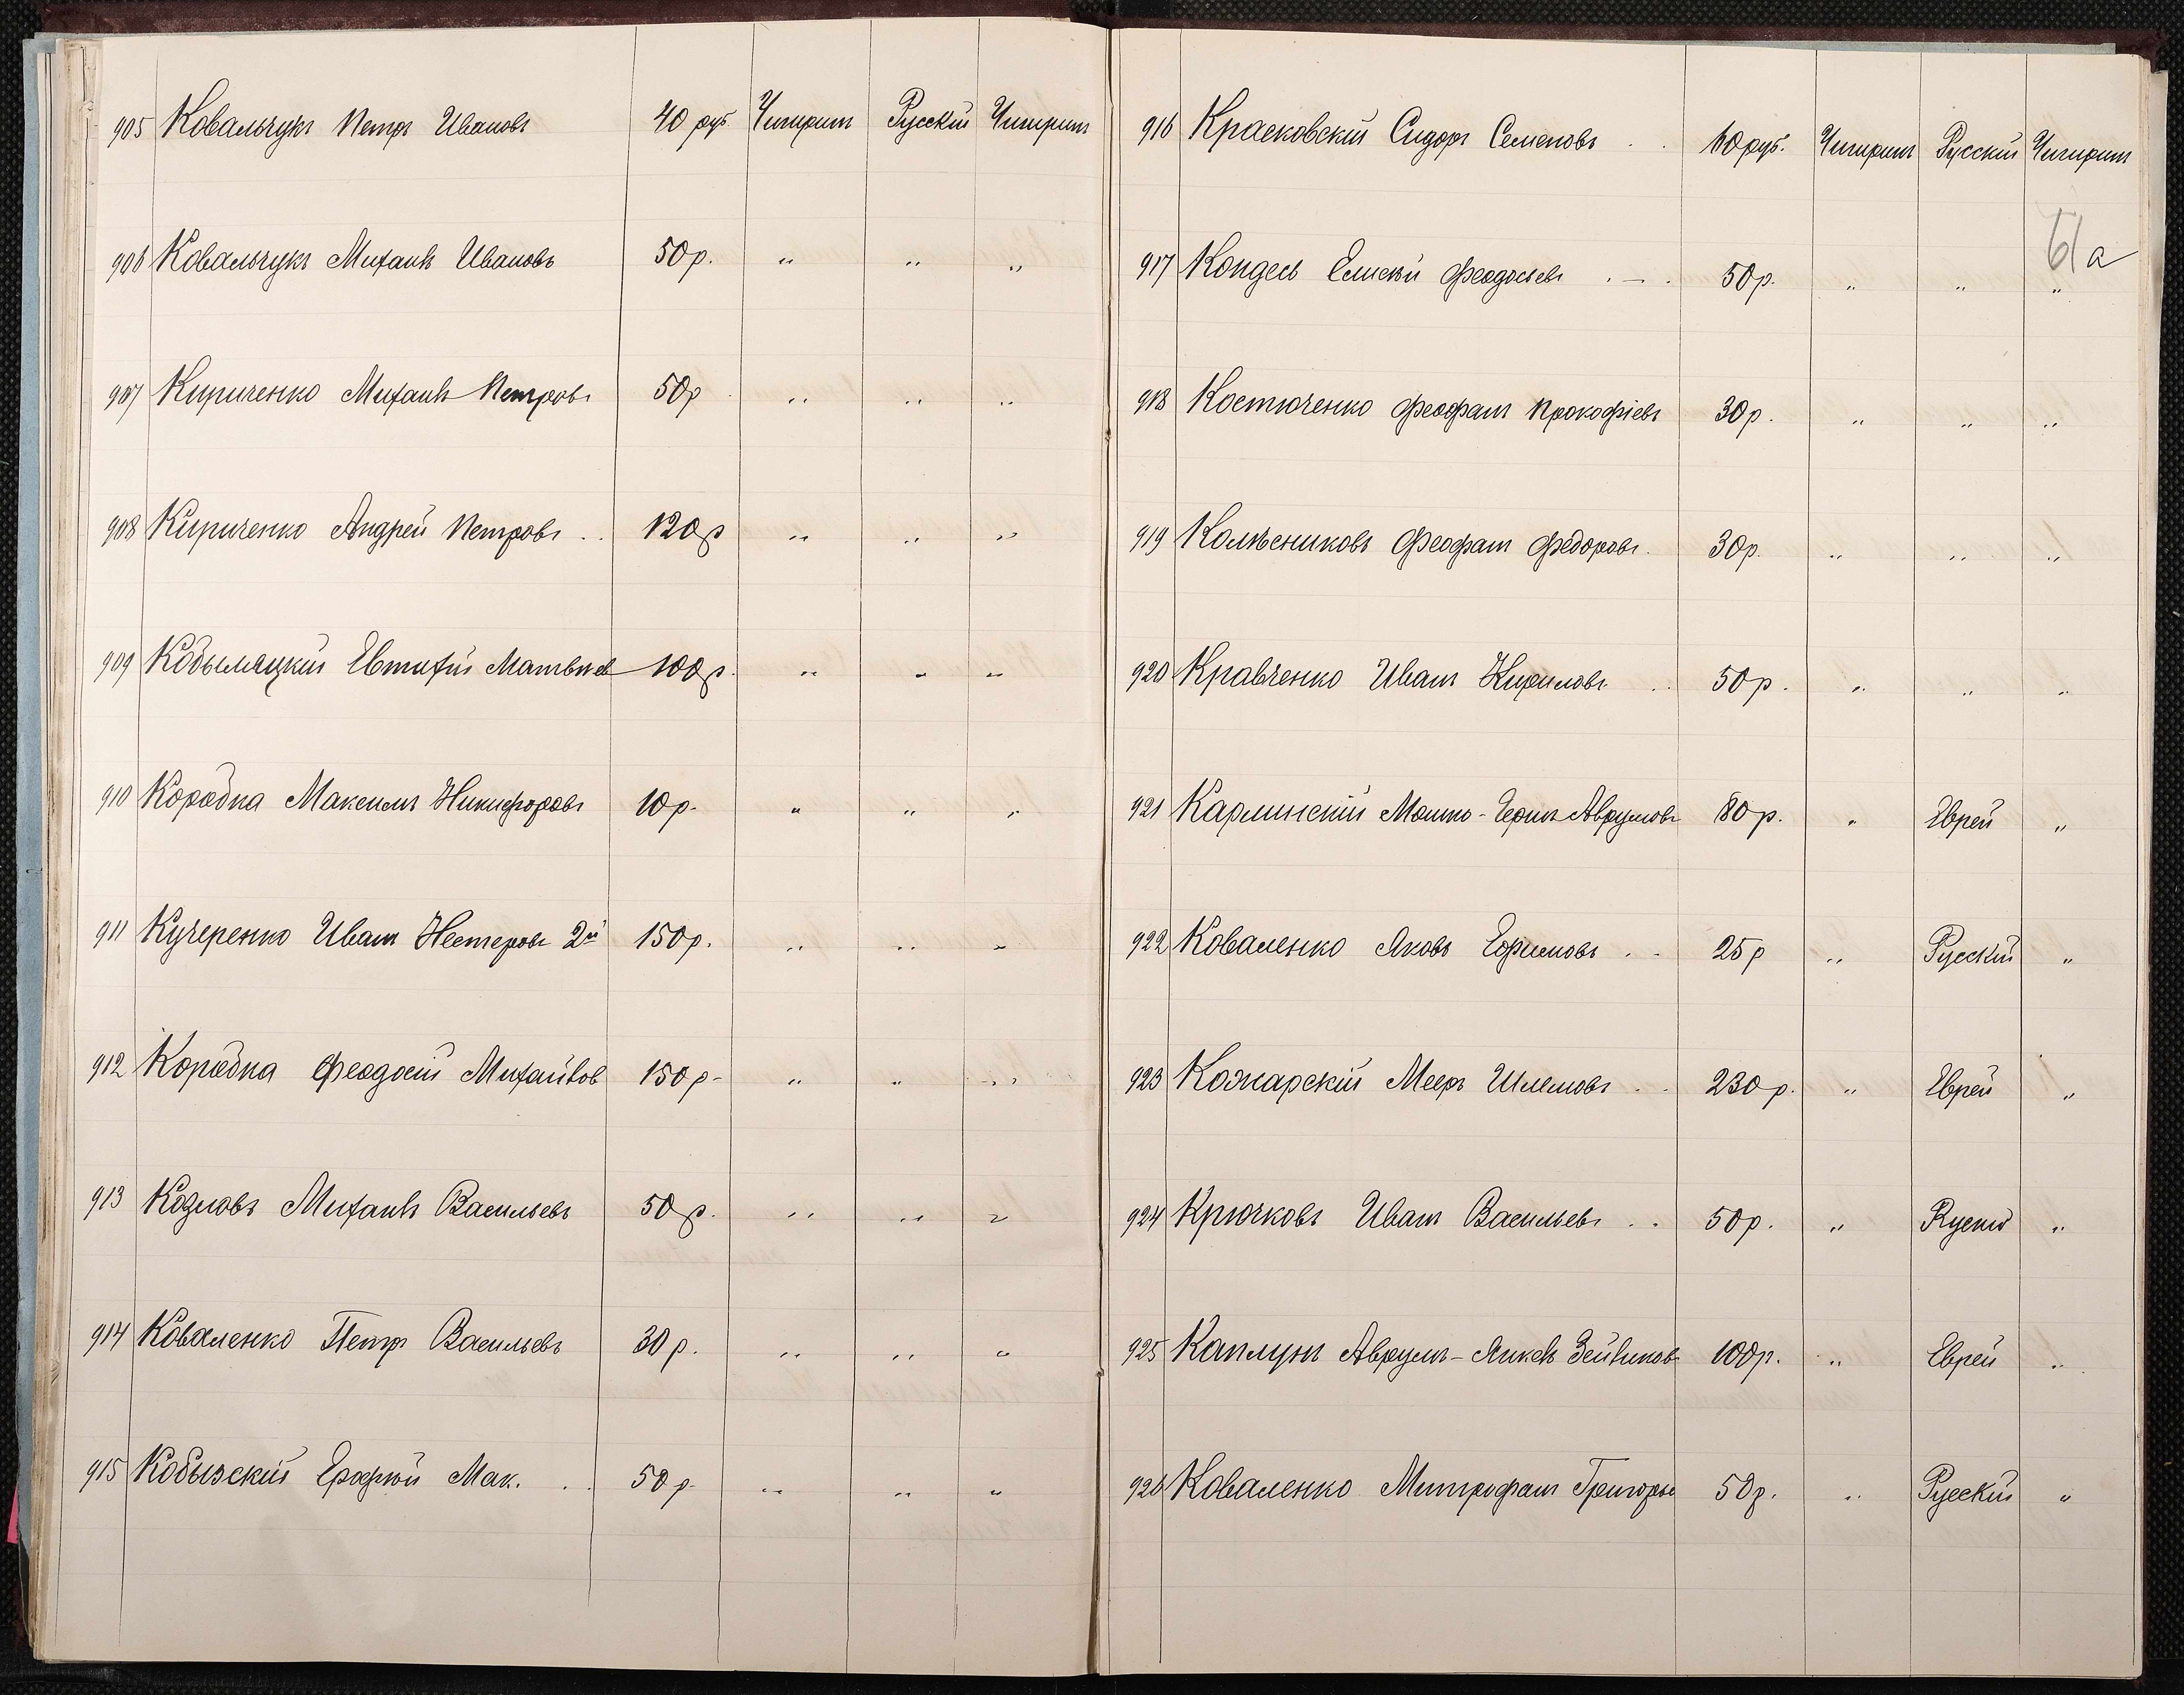 905 Ковальчукъ Петръ Ивановъ 40 руб. Чигиринъ Русскій Чигиринъ
906 Ковальчукъ Михаилъ Ивановъ 50 р. " " "
907 Кириченко Михаилъ Петровъ 50 р " " "
908 Кириченко Андрей Петровъ .. 120 р " " "
909 Кобыляцкій Евтихій Матвѣев 100 р. " " "
910 Коробка Максимъ Никифоровъ 10 р. " " "
911 Кучеренко Иванъ Нестеровъ 2й 150 р. " " "
912 Коробка Феодосій Михайлов 150 р - " " "
913 Козловъ Михаилъ Васильевъ 50 р. " " "
914 Коваленко Петръ Васильевъ 30 р. " " "
915 Кобызскій Ерофѣй Мак. . . 50 р. " " "
916 Красковскій Сидоръ Семеновъ . . 60 руб. Чигиринъ Русскій Чигиринъ
61а
917 Елисѣй Феодосьевъ . - . 50 р. " " "
918 Костюченко Феофанъ Прокофіевъ 30 р. " " "
919 Колѣсниковъ Феофанъ Федоровъ. 30 р. " " "
920 Кравченко Иванъ Кириловъ .. 50 р. " " "
921 Карлинскій Мошко-Герш Аврумовъ 80 р. " Еврей "
922 Коваленко Яковъ Ефимовъ . . 25 р " Русскій "
923 Кожарскій Меер Шлемовъ . . 230 р. " Еврей "
924 Крючковъ Иванъ Васильевъ . . 50 р. " Русскій "
925 Каплунъ Аврумъ- 100 р. " Еврей "
926 Коваленко Митрофанъ Григорье 50 р. " Русскій "